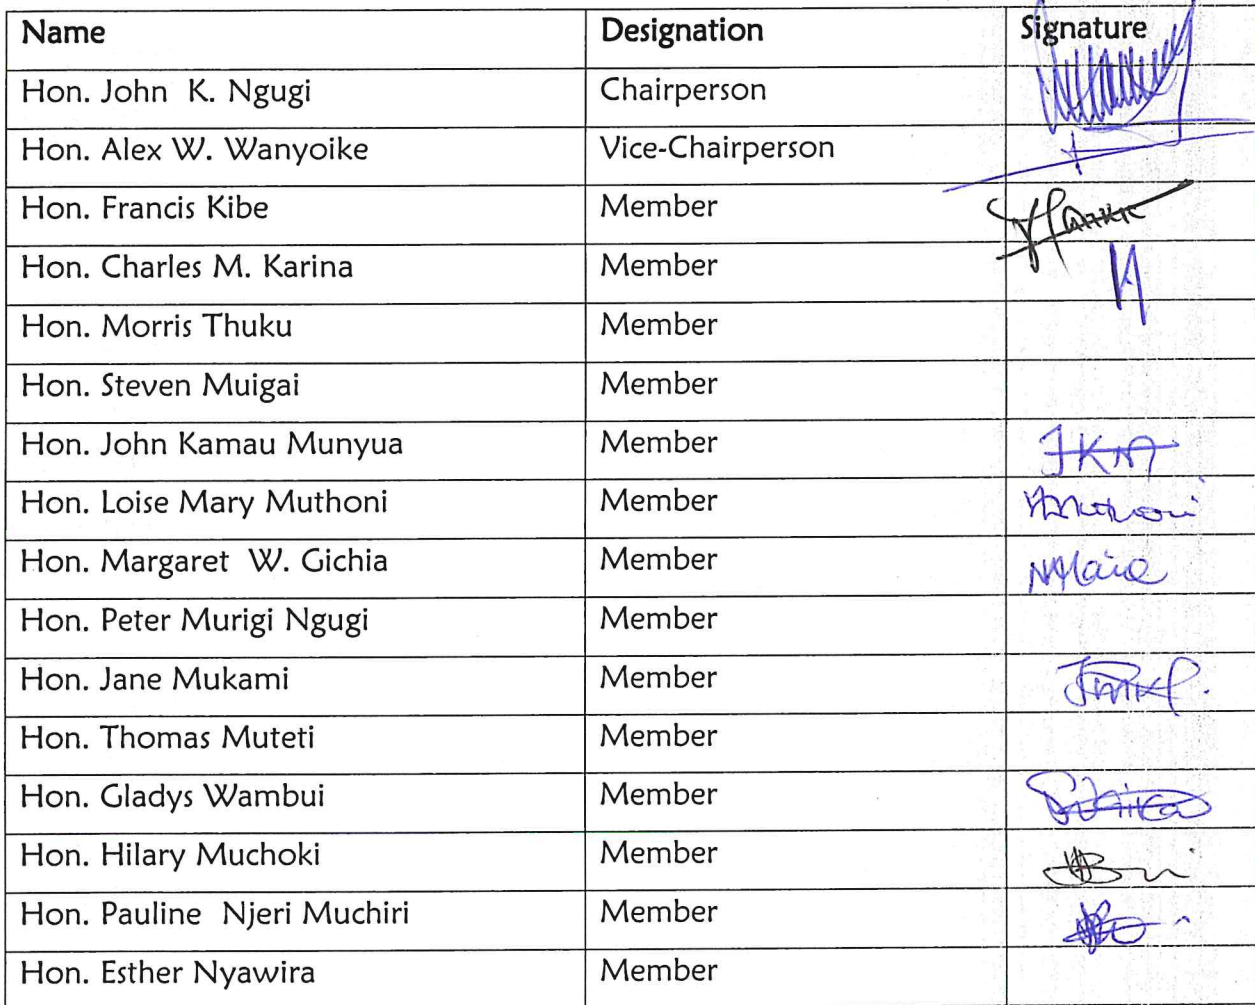 Name Designation Signature
Hon. John K. Ngugi Chairperson
Hon. Alex W. Wanyoike Vice-Chairperson
Hon. Francis Kibe Member
Hon. Charles M. Karina Member
Hon. Morris Thuku Member
Hon. Steven Muigai Member
Hon. John Kamau Munyua Member JKM
Hon. Loise Mary Muthoni Member
Hon. Margaret W. Gichia Member
Hon. Peter Murigi Ngugi Member
Hon. Jane Mukami Member
Hon. Thomas Muteti Member
Hon. Gladys Wambui Member
Hon. Hilary Muchoki Member
Hon. Pauline Njeri Muchiri Member
Hon. Esther Nyawira Member